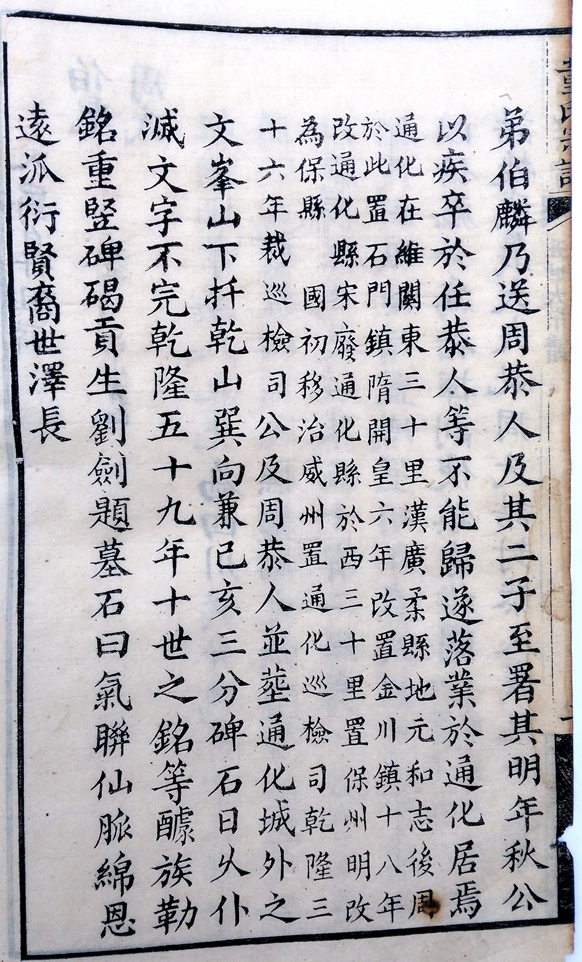 弟伯麟乃送周恭人及其二子至署其明年秋公
以疾卒於任恭人等不能歸遂落業於通化居焉
通化在維關東三十里漢廣柔縣地元和志後周
於此置石門鎮隋開皇六年改置金川鎮十八年
改通化縣宋廢通化縣於西三十里置保州明改
為保縣 國初移治威州置通化巡檢司乾隆三
十六年裁巡檢司公及周恭人並塟通化城外之
文峯山下扦乾山巽向兼巳亥三分碑石日久仆
滅文字不完乾隆五十九年十世之銘等醵族勒
銘重竪碑碣貢生劉劍題墓石曰氣聯仙脈綿恩
遠派衍賢裔世澤長